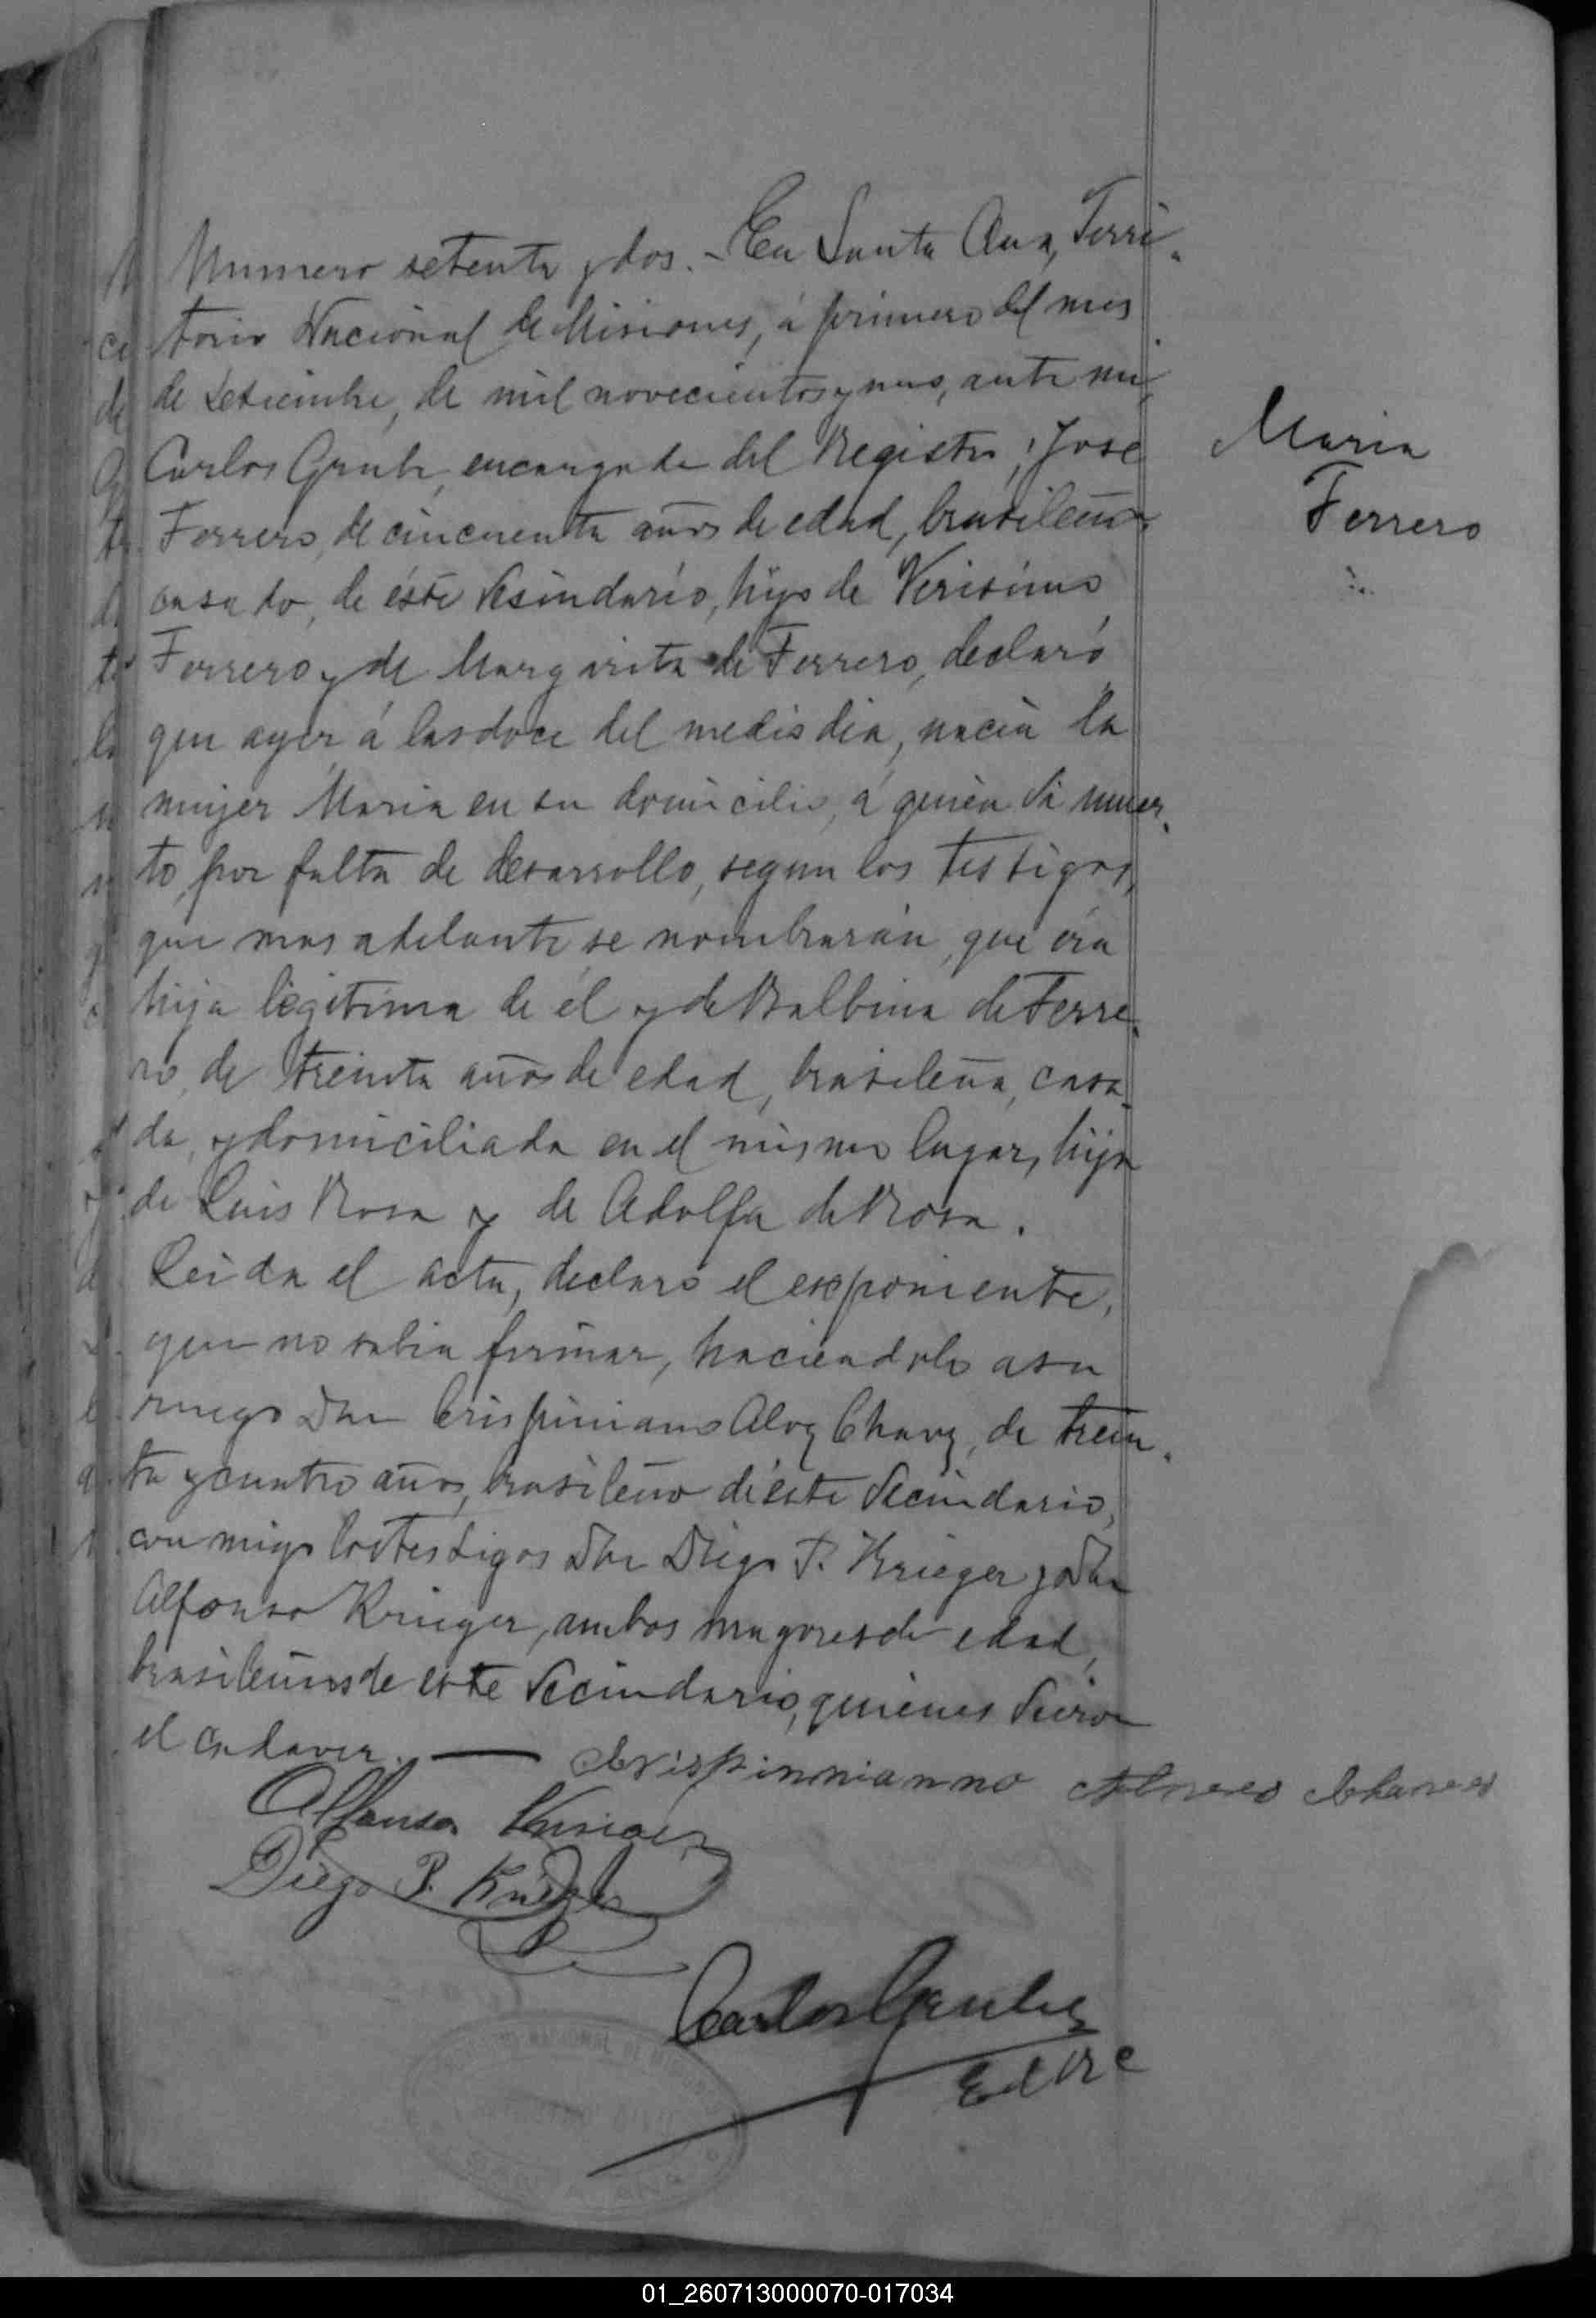 Numero setenta y dos. - En Santa Ana, Terri-
torio Nacional de Misiones, á primero del mes
de Setiembre, de mil novecientos y uno, ante mi,
Carlos Grube, encargado del Registro, José
Ferrero, de cincuenta años de edad, brasileño
casado, de éste vesindario, hijo de Verisimo
Ferrero y de Margarita de Ferrero, declaró
que ayer á las doce del medio dia, nacia la
mujer Maria en su domicilio, á quien vi muer-
to, por falta de desarrollo, segun los testigos,
que mas adelante se nombrarán, que éra
hija legitima de él y de Balbina de Ferre-
ro, de treinta años de edad, brasileña, casa-
da, y domiciliada en el mismo lugar, hija
de Luis Rosa y de Adolfa de Rosa.
Leida el acta, declaró el exponiente,
que no sabia firmar, haciendolo a su
ruego Don Crispiniano Alvz Chavz, de trein-
ta y cuatro años, brasileño de éste vecindario,
conmigo los testigos Don Diego P. Krieger y Don
Alfonso Krieger, ambos mayores de edad,
brasileños de este vecindario, quienes vieron
el cadaver. — Crispinnianno Alves Chaves
Alfonso Krieger
Diego P. Krieger
Carlos Grube
E d R C
Maria
Ferrero